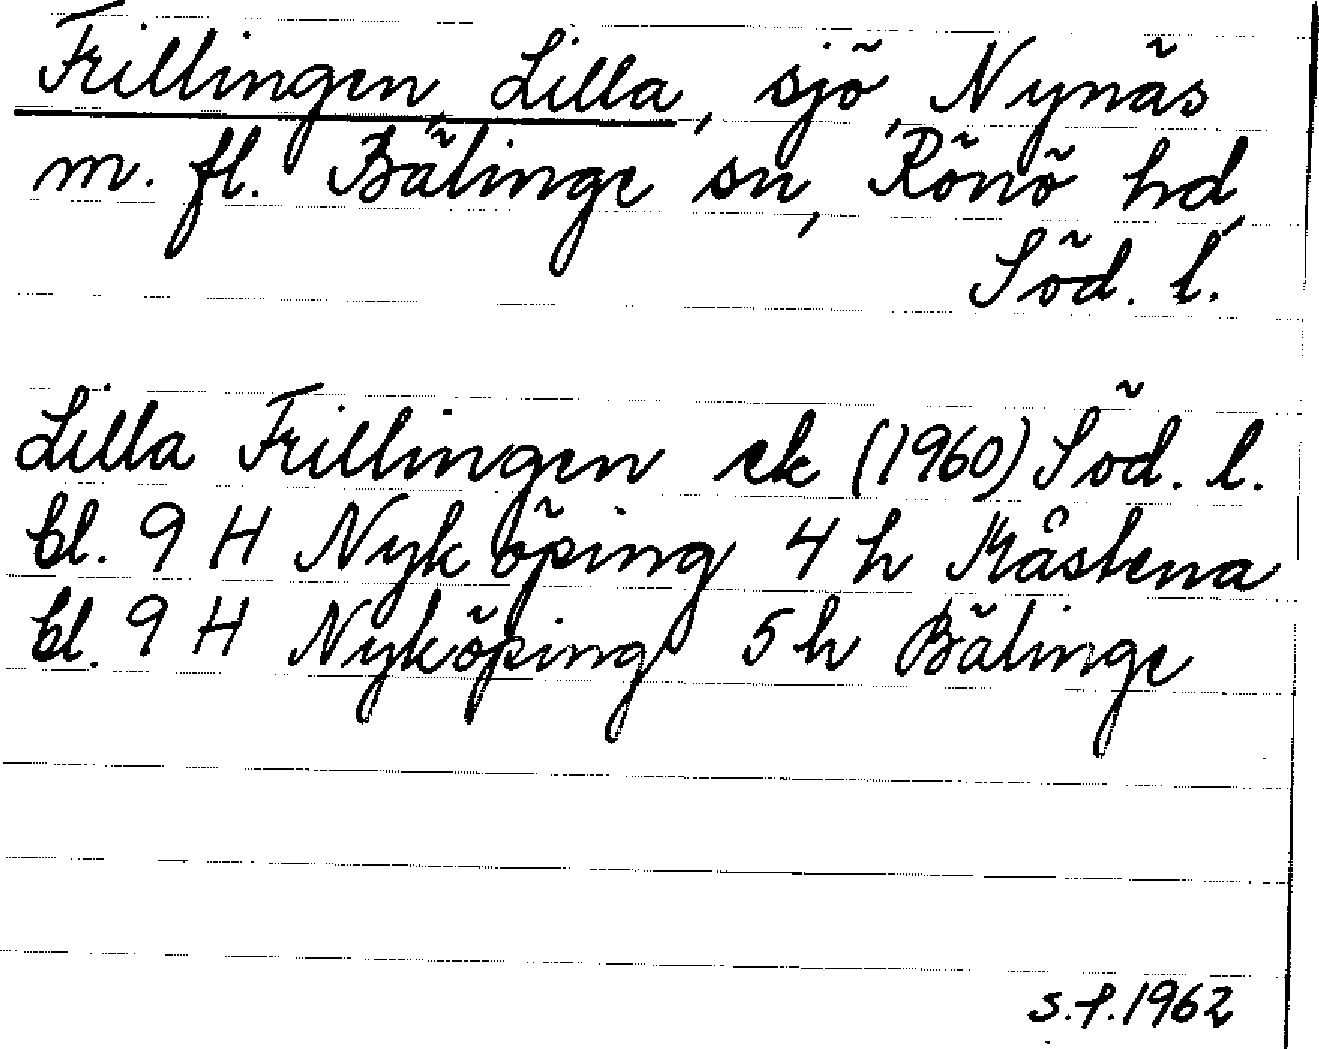 Frillingen, Lilla, sjö, Nynäs
m. fl. Bälinge sn, Rönö hd,
Söd. l.
Lilla Frillingen ek (1960) Söd. l.
bl. 9 H Nyköping 4 h Måstena
bl. 9 H Nyköping 5 h Bälinge
s.f. 1962